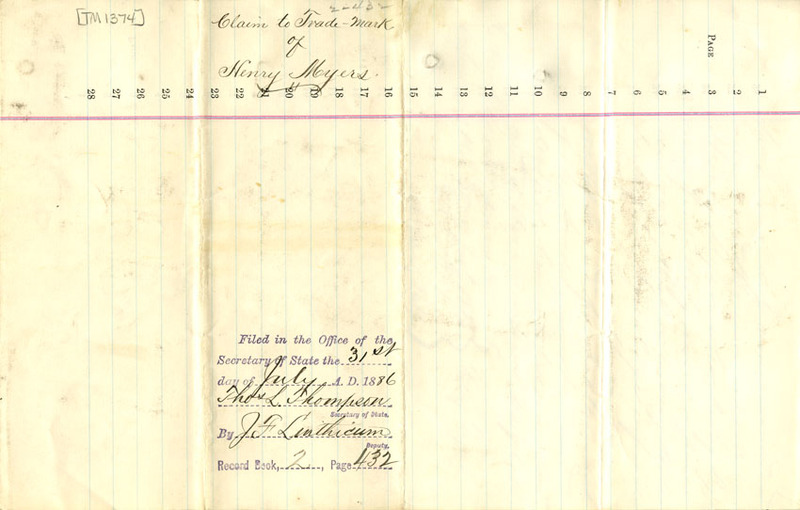 [TM 1374]
2-432
Claim to Trade-Mark
of
Henry Myers
PAGE
28 27 26 25 24 23 22 21 20 19 18 17 16 15 14 13 12 11 10 9 8 7 6 5 4 3 2 1
Filed in the Office of the
Secretary of State the 31st
day of July A. D. 1886
Thos L. Thompson
Secretary of State.
By J F Linthicum
Deputy.
Record Book, 2, Page 432